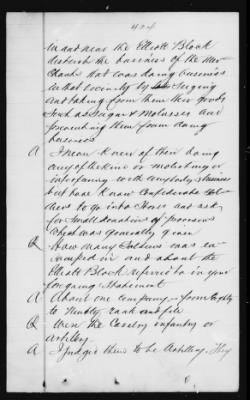 424
in and near the Elliott Block
disturb the business of the mer
chants that was doing business
in that vicinity by seizing
and taking from them their goods
Such as Sugar & Molasses and
preventing them from doing
business
A I never knew of them doing
any of the kind or molesting or
interfearing with anybodys business
but have known Confederate Sol
diers to go into Stores and ask
for Small donations of provisions
which was generally given
Q How many Soldiers was en
camped in and about the
Elliott Block refered to in your
forgoing Statement
A About one company - from Eighty
to Ninety, rank and file
Q Were the Cavelry infantry or
artilery.
A I judged them to be Artilery. They